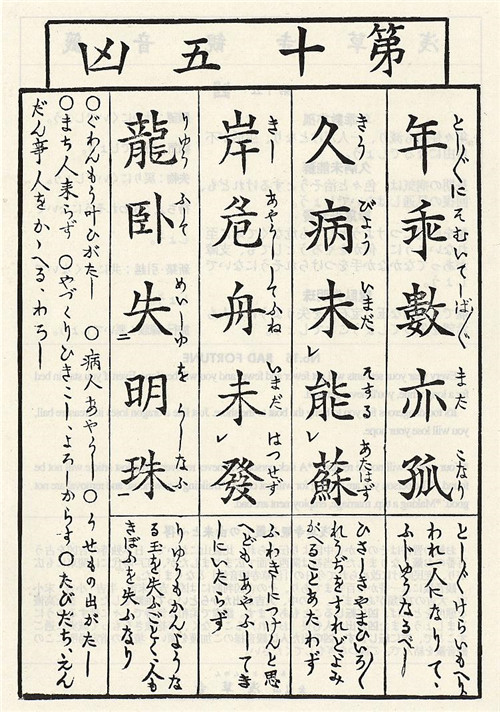 第十五凶
年乖數亦孤
としくにそむいてばくまたこなり
としよりけらいもへり、われ一人になりて、ふじゆうなるべし
久病未能蘇
きうびやういまだそするあたはず
ひさしきやまひいろ〳〵れうぢをすれどよみがへることあたわず
岸危舟未發
きしあやうしてふねいまだはつせず
ふねきしにつけんと思へども、あやふしてきしにいたらず
龍臥失明珠
りゆうふしてめいしゆをうしなふ
りゆうもかんような る玉を失ふごとく、人も きぼふを失ふなり
〇ぐわんもう叶ひがたし 〇病人あやうし 〇うせもの出がたし
〇まち人来らず 〇やづくりひきこしよろしからず 〇たびだち、えん
だん、事、人をかゝへる、わろし